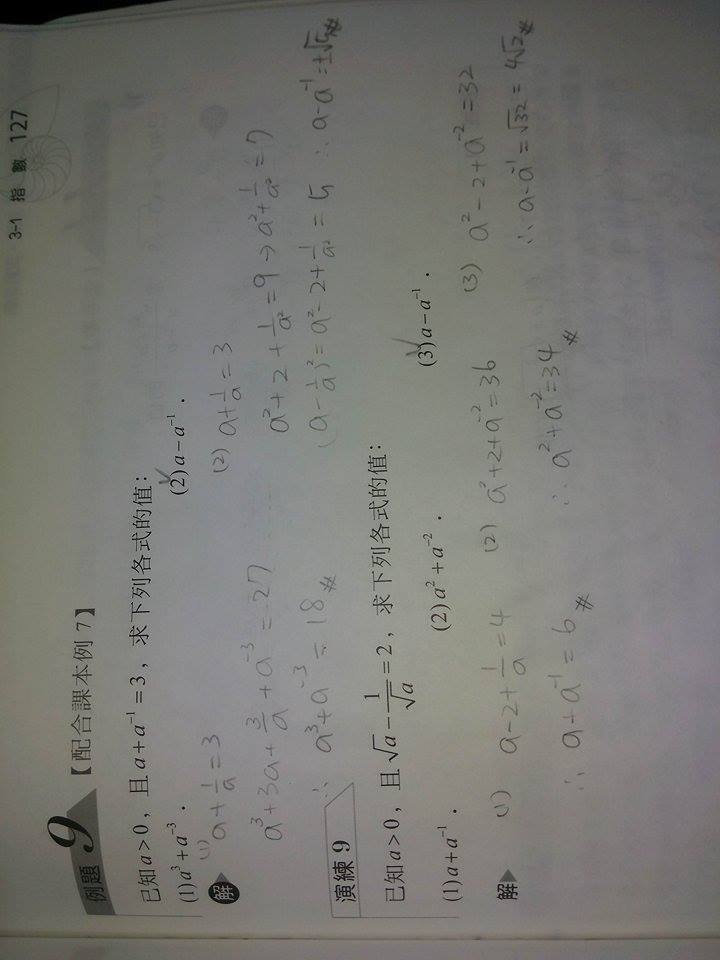 3-1 指 數 127
例題 9 【配合課本例 7】
已知 a > 0，且 a + a⁻¹ = 3，求下列各式的值：
(1) a³ + a⁻³． (2) a − a⁻¹．
解
(1) a + 1/a = 3
a³ + 3a + 3/a + a⁻³ = 27
∴ a³ + a⁻³ = 18 #
(2) a + 1/a = 3
a² + 2 + 1/a² = 9 → a² + 1/a² = 7
(a − 1/a)² = a² − 2 + 1/a² = 5 ∴ a − a⁻¹ = ±√5 #
演練 9
已知 a > 0，且 √a − 1/√a = 2，求下列各式的值：
(1) a + a⁻¹． (2) a² + a⁻²． (3) a − a⁻¹．
解
(1) a − 2 + 1/a = 4
∴ a + a⁻¹ = 6 #
(2) a² + 2 + a⁻² = 36
∴ a² + a⁻² = 34 #
(3) a² − 2 + a⁻² = 32
∴ a − a⁻¹ = √32 = 4√2 #